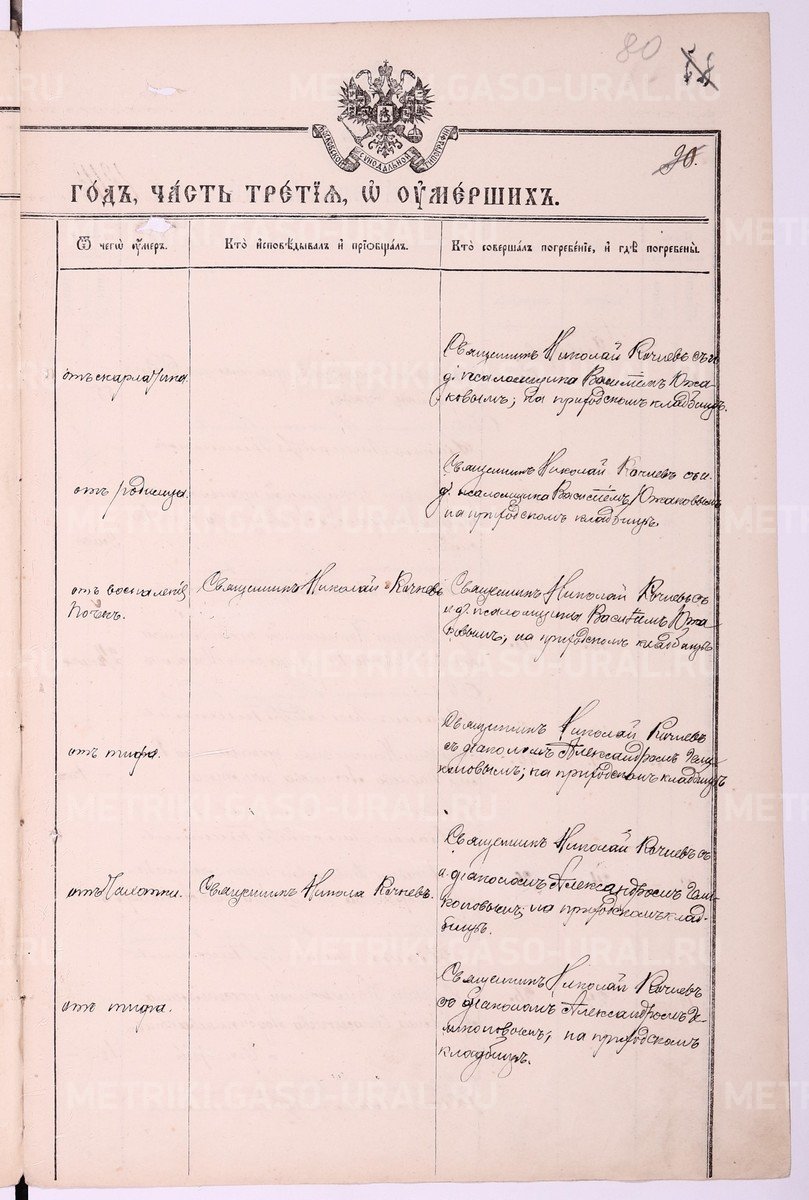 80
90.
МОСКОВСКОЙ СѴНОДАЛЬНОЙ ТИПОГРАФІИ
ГО́ДЪ, ЧА́СТЬ ТРЕ́ТІѦ, Ѡ҆ ОУ҆МЕ́РШИХЪ.
Ѿ чегѡ̀ ᲂу҆́меръ.
Кто̀ и҆сповѣ́дывалъ и҆ прїѡбща́лъ.
Кто̀ соверша́лъ погребе́нїе, и҆ гдѣ̀ погребены̀.
отъ скарлатина.
Священникъ Николай Кочневъ съ и.
д. псаломщика Василіемъ Южа-
ковымъ; на приходскомъ кладбищѣ.
отъ родимца.
Священникъ Николай Кочневъ съ и.
д. псаломщика Василіемъ Южаковымъ
на приходскомъ кладбищѣ.
отъ воспаленія
почекъ.
Священникъ Николай Кочневъ
Священникъ Николай Кочневъ съ
и д. псаломщика Василіемъ Южа-
ковымъ; на приходскомъ кладбищѣ
отъ тифа.
Священникъ Николай Кочневъ
съ діакономъ Александромъ
на приходскомъ кладбищѣ
отъ чахотки.
Священникъ Никола Кочневъ.
Священникъ Николай Кочневъ съ
діакономъ Александромъ
на приходскомъ клад-
бищѣ.
отъ тифа.
Священникъ Николай Кочневъ
со діакономъ Александромъ
на приходскомъ
кладбищѣ.
METRIKI.GASO-URAL.RU